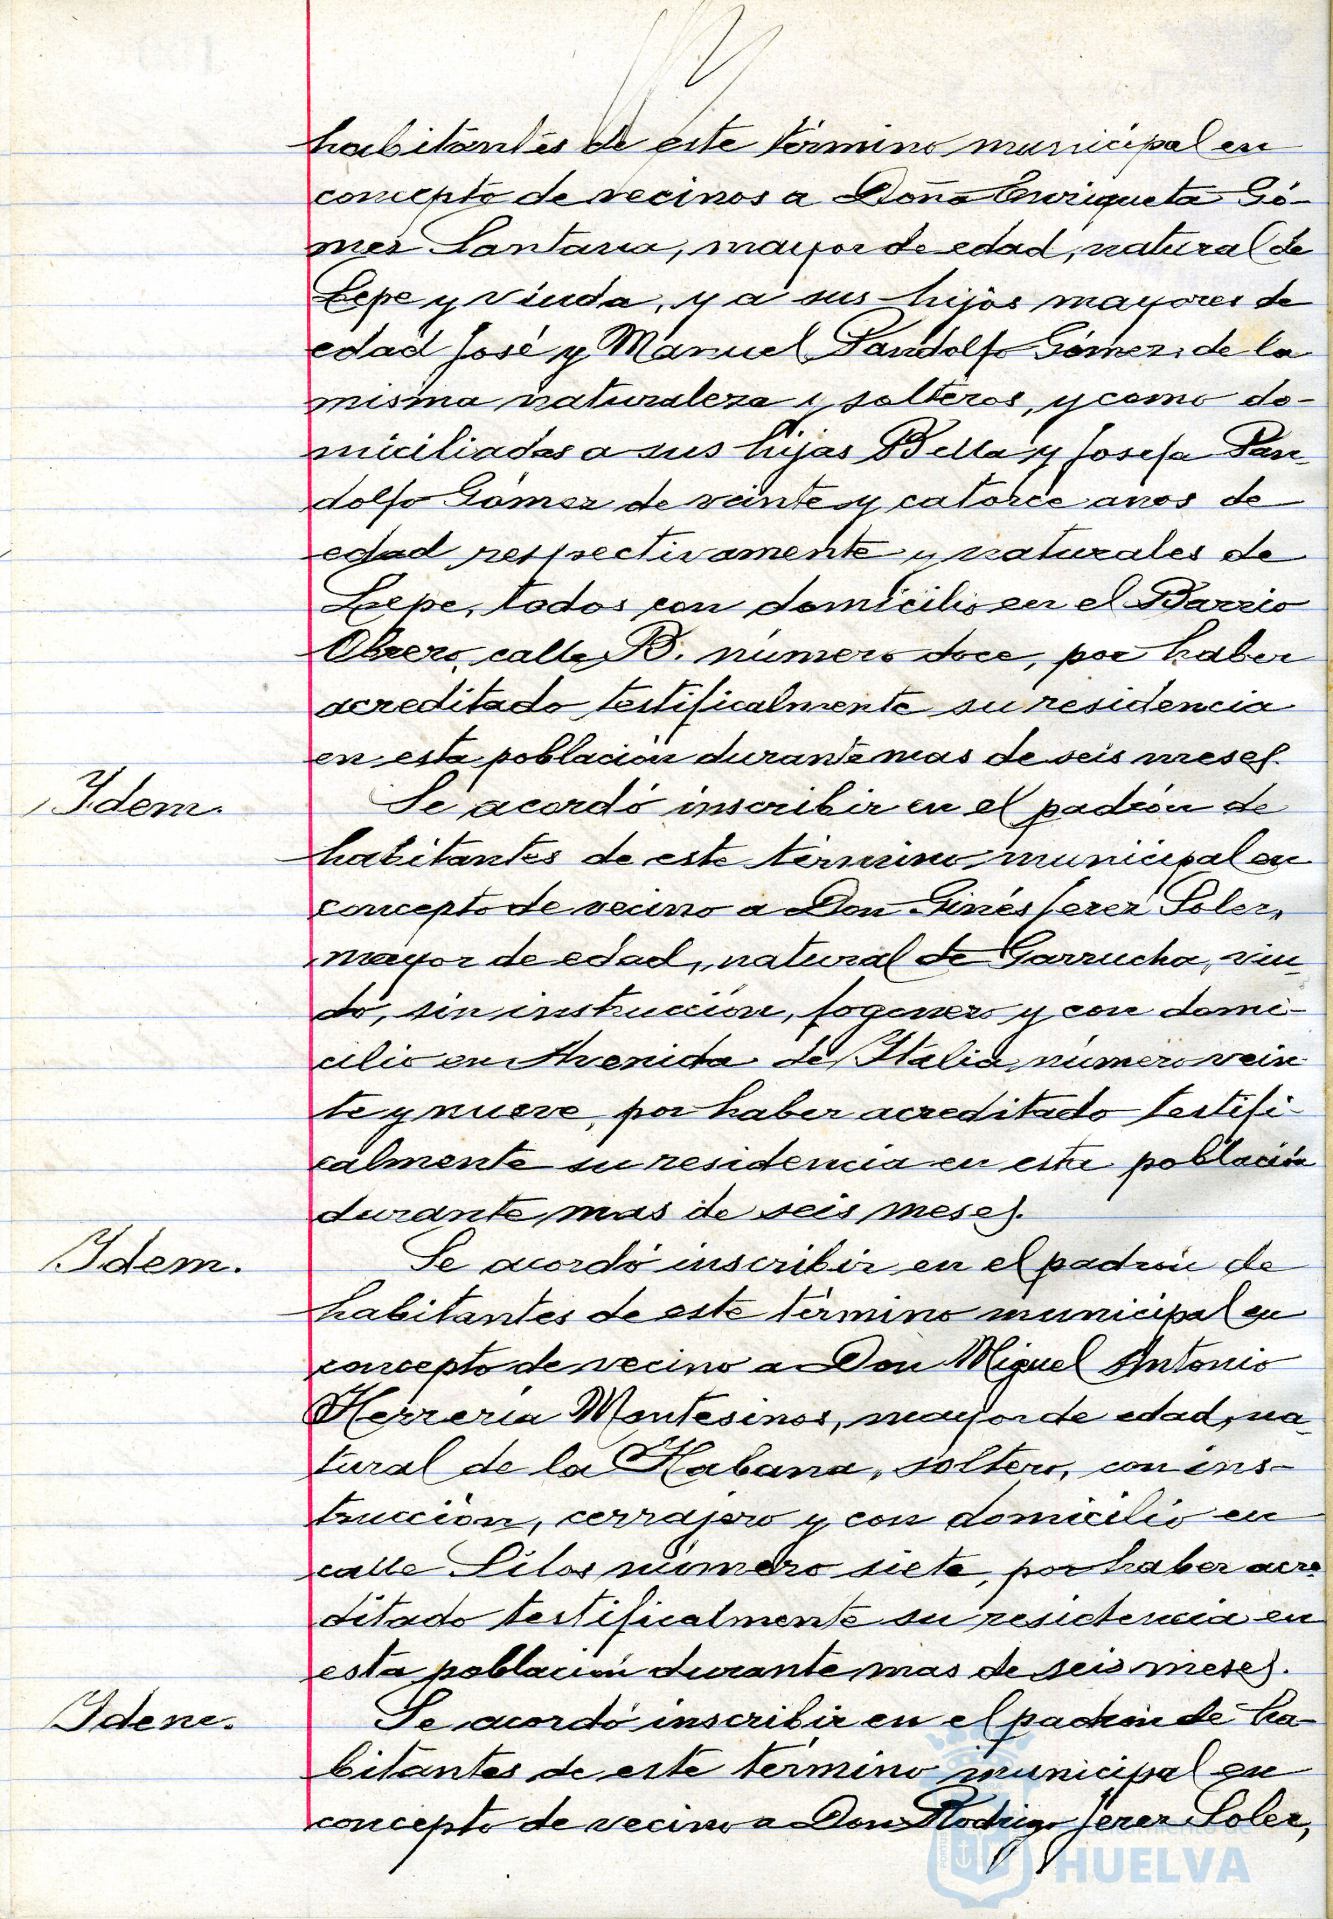 habitantes de este término municipal en
concepto de vecinos a Doña Enriqueta Gó-
mez Santana, mayor de edad, natural de
Lepe y viuda, y a sus hijos mayores de
edad José y Manuel Pandolfo Gómez, de la
misma naturaleza y solteros, y como do-
miciliadas a sus hijas Bella y Josefa Pan-
dolfo Gómez de veinte y catorce anos de
edad respectivamente y naturales de
Lepe, todos con domicilio en el Barrio
Obrero, calle B. número doce, por haber
acreditado testificalmente su residencia
en esta población durante mas de seis meses.
Idem.
Se acordó inscribir en el padrón de
habitantes de este término municipal en
concepto de vecino a Don Ginés Jerez Soler,
mayor de edad, natural de Garrucha, viu-
do, sin instrucción, fogonero y con domi-
cilio en Avenida de Italia número vein-
te y nueve, por haber acreditado testifi-
calmente su residencia en esta población
durante mas de seis meses.
Idem.
Se acordó inscribir en el padrón de
habitantes de este término municipal en
concepto de vecino a Don Miguel Antonio
Herrería Montesinos, mayor de edad, na-
tural de la Habana, soltero, con ins-
trucción, cerrajero y con domicilio en
calle Silos número siete, por haber acre-
ditado testificalmente su residencia en
esta población durante mas de seis meses.
Idem.
Se acordó inscribir en el padrón de ha-
bitantes de este término municipal en
concepto de vecino a Don Rodrigo Jerez Soler,
HUELVA